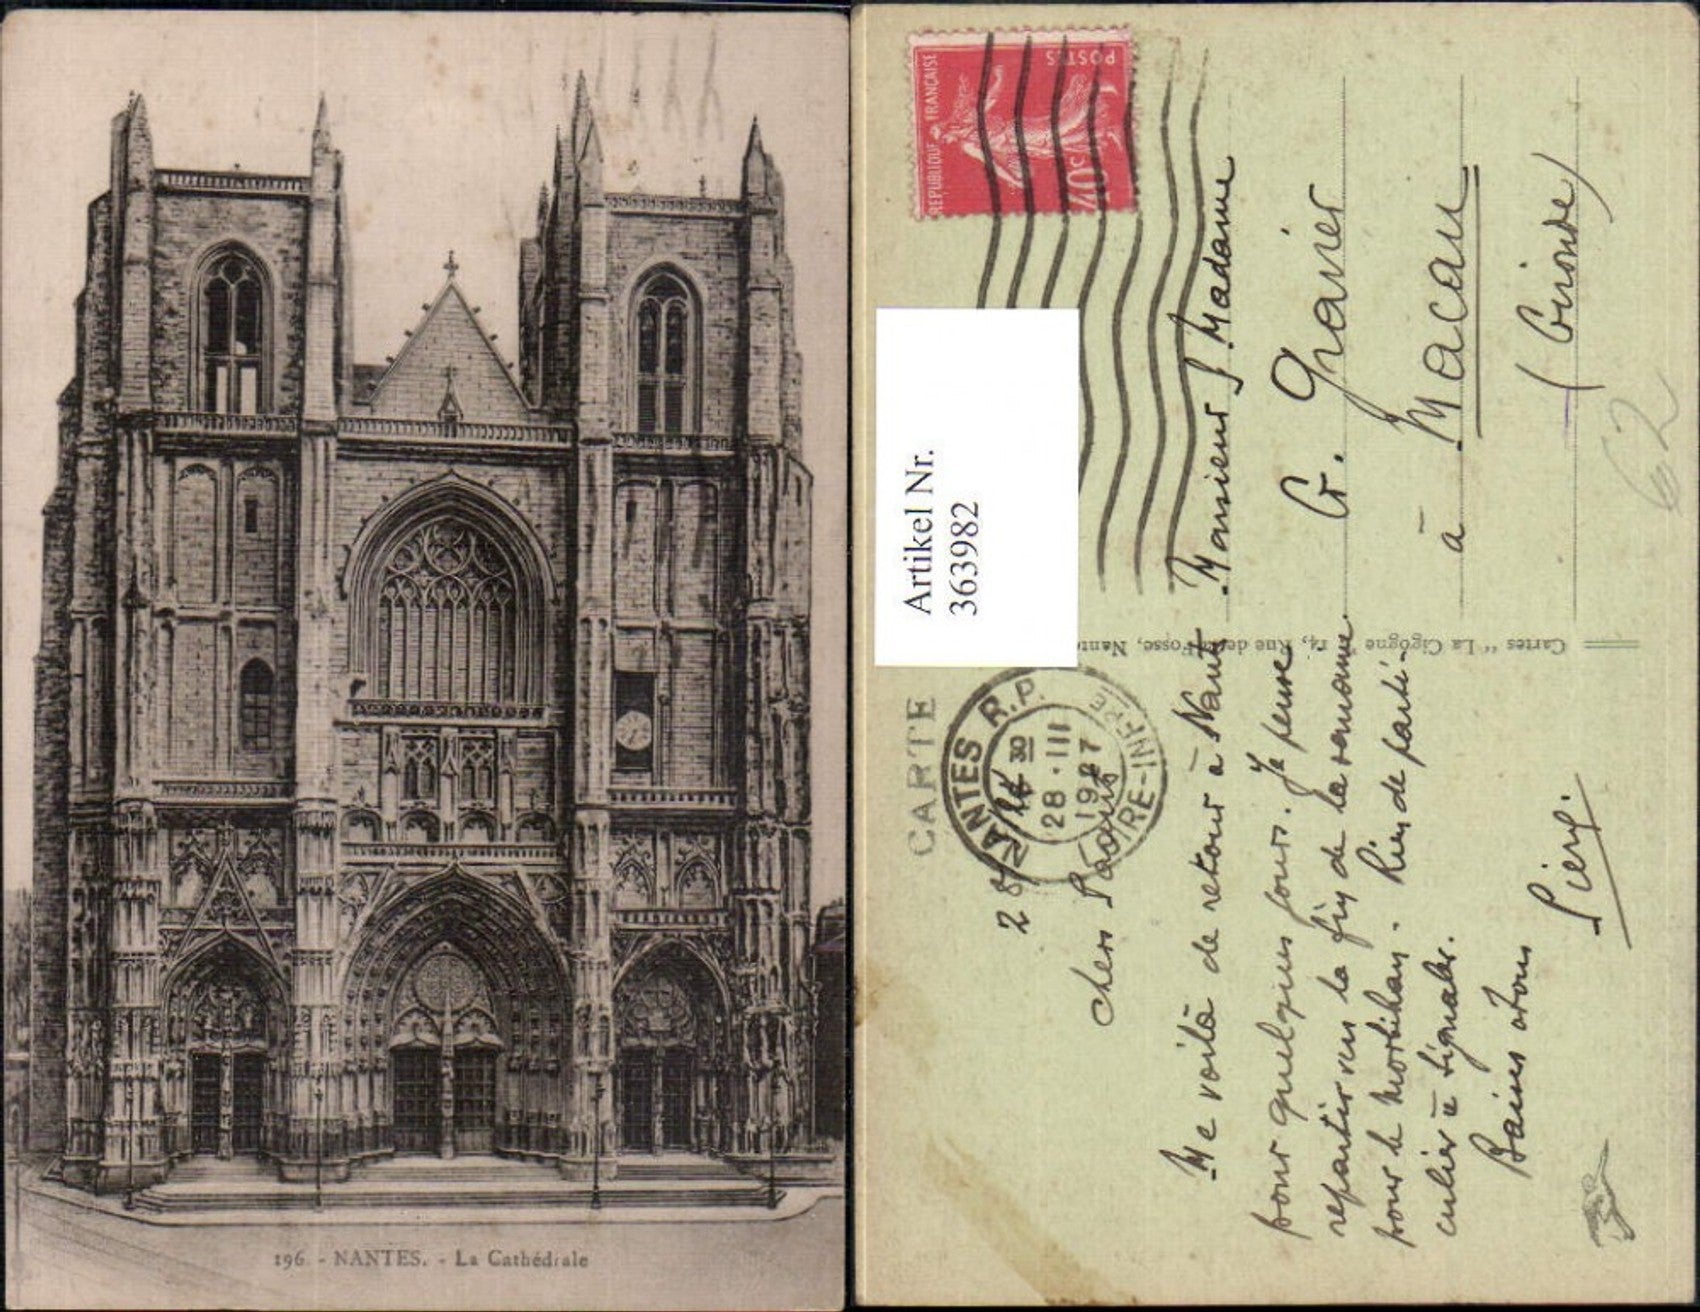 196 - NANTES. - La Cathédrale
REPUBLIQUE FRANÇAISE
POSTES
40c
Artikel Nr.
3639982
CARTE
NANTES R.P.
30
28 · III
LOIRE-INFRE
Cartes "La Cigogne", 14, Rue de la Fosse, Nantes
Chers Parents
Me voilà de retour à Nantes
pour quelques jours. Je pense
repartir vers la fin de la semaine
pour le Morbihan. Rien de parti-
culier à signaler.
Baisers à tous
Pierre.
Monsieur & Madame
G. Granier
à Macau
(Gironde)
62